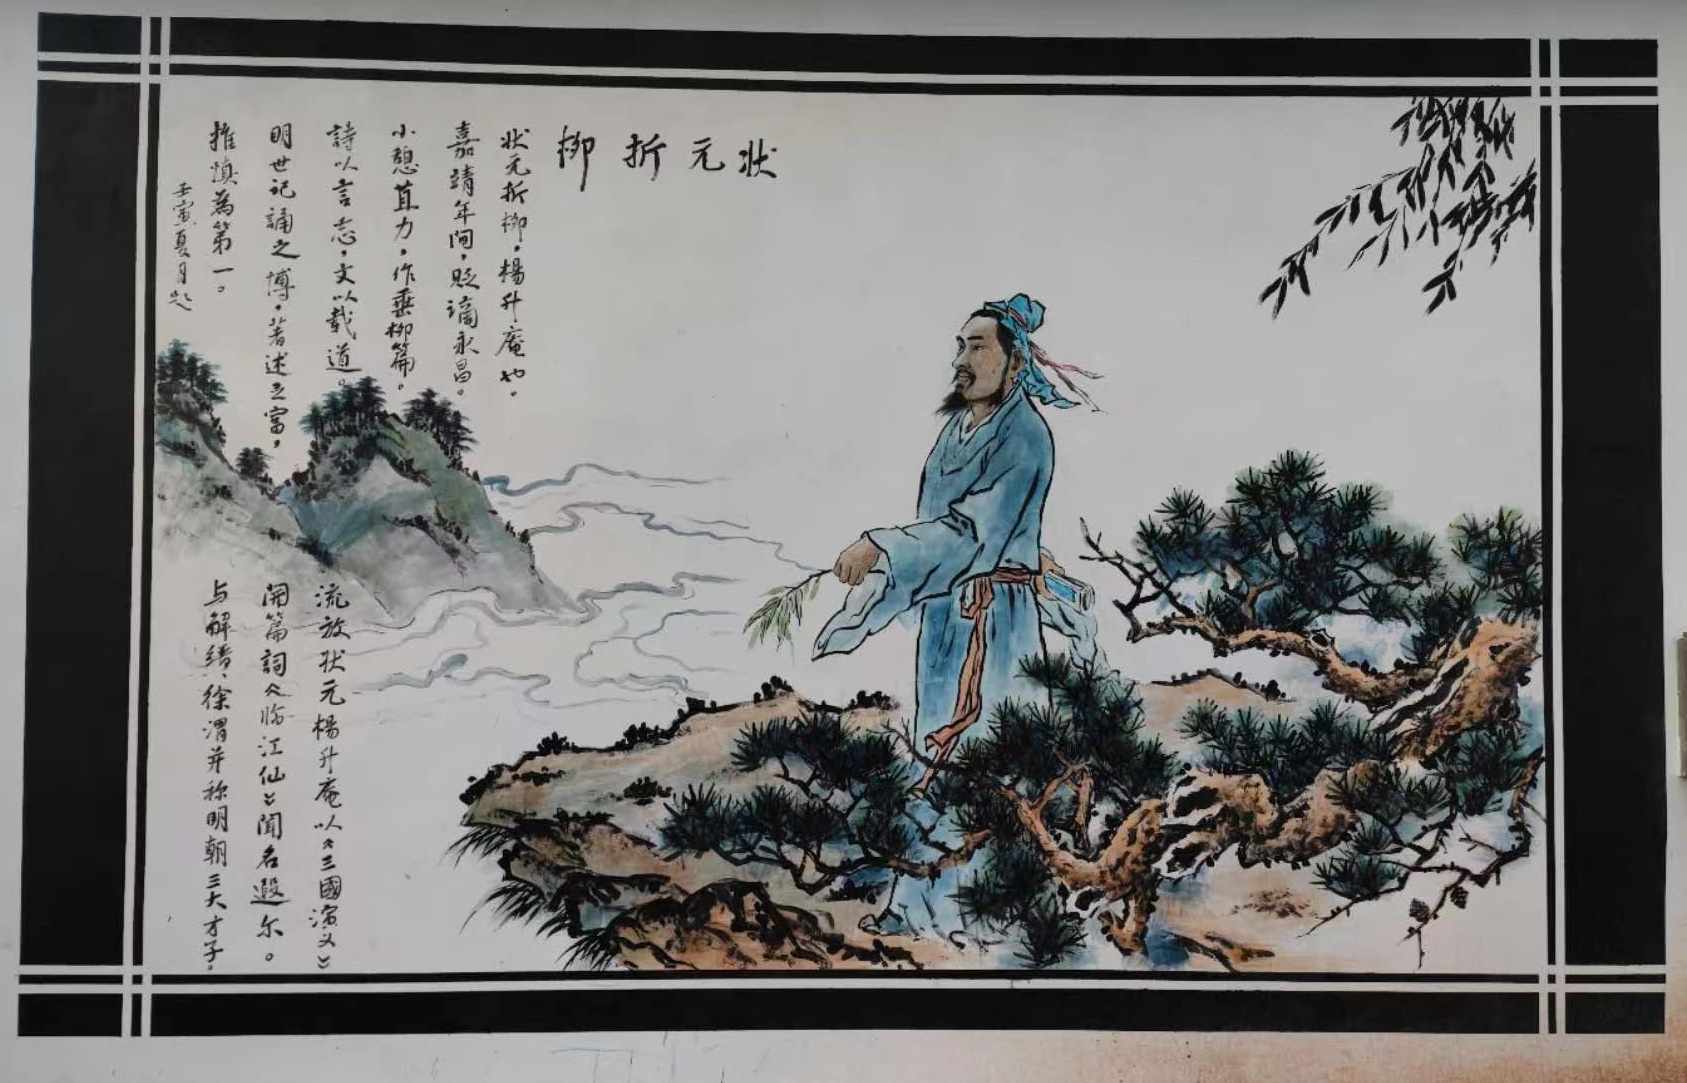 状元折柳
状元折柳，楊升庵也。
嘉靖年间，貶谪永昌。
小憩苴力，作垂柳篇。
詩以言志，文以载道。
明世记誦之博，著述之富，
推慎為第一。
壬寅夏月记
流放状元楊升庵以《三國演义》
開篇詞《临江仙》闻名遐尔。
与解缙、徐渭并称明朝三大才子。